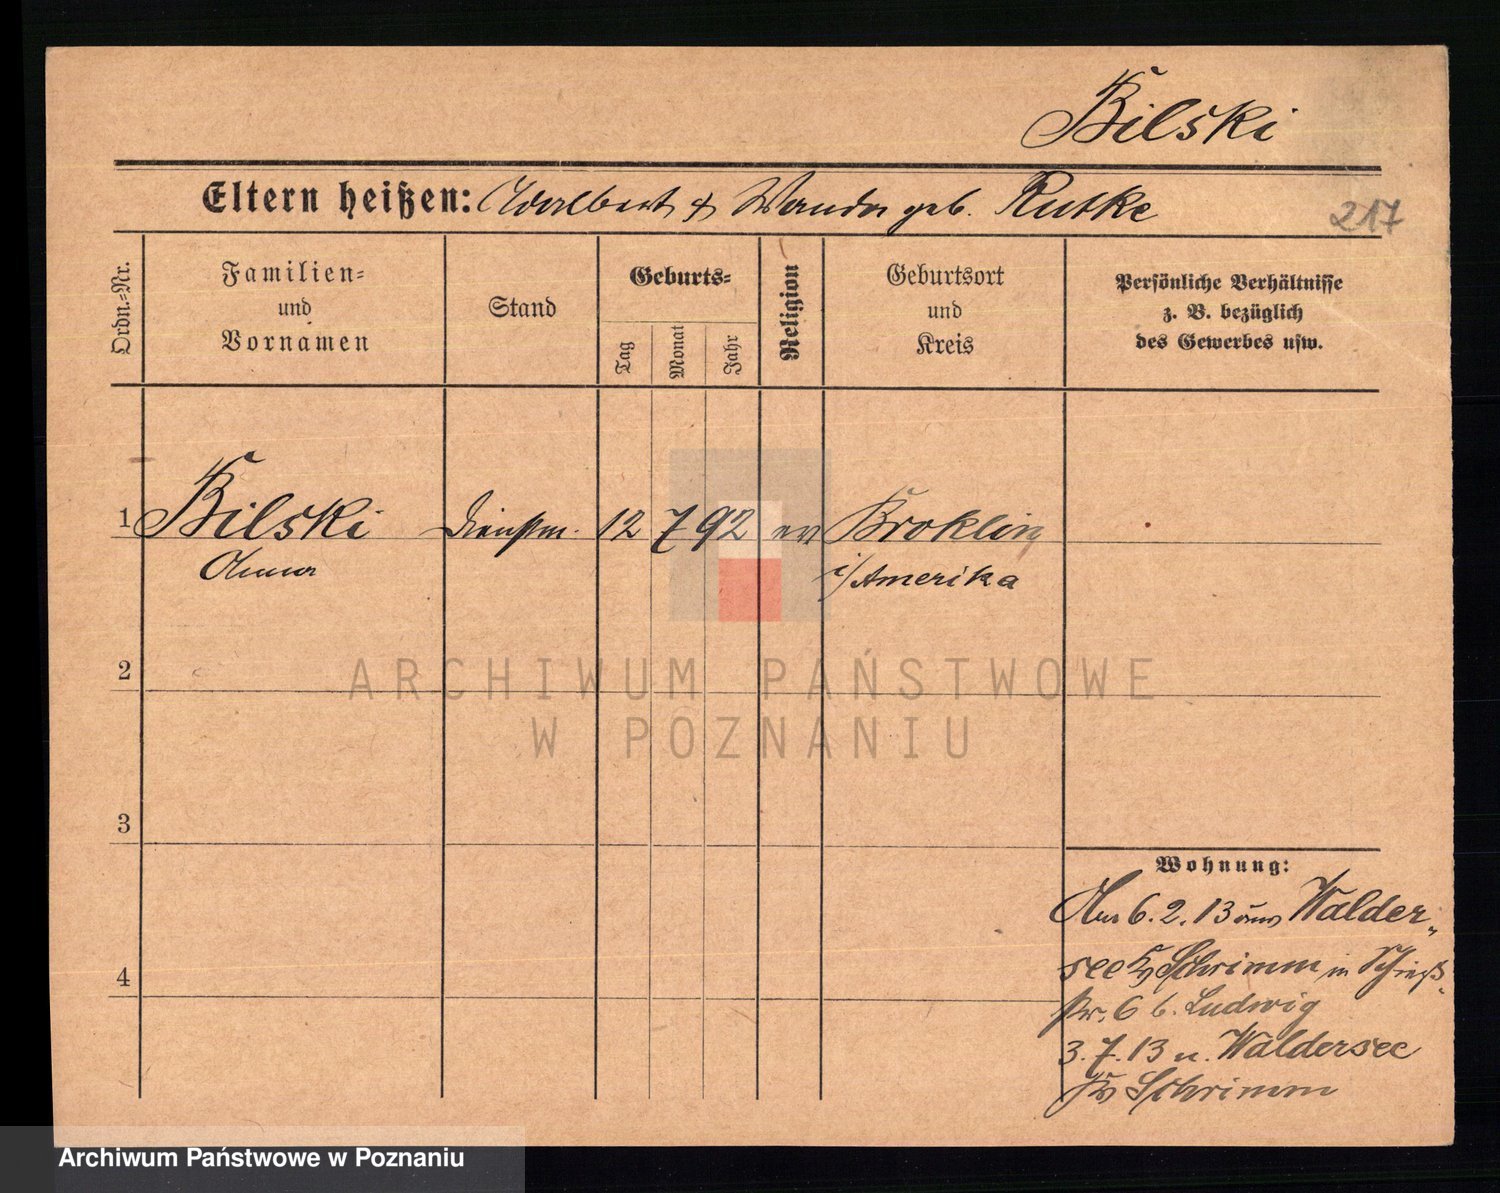 Bilski
Eltern heißen: Adalbert & Wanda geb. Rutke
217
Ordn.=Nr.
Familien=
und
Vornamen
Stand
Geburts=
Tag
Monat
Jahr
Religion
Geburtsort
und
Kreis
Persönliche Verhältnisse
z. B. bezüglich
des Gewerbes usw.
1 Bilski Dienstm. 12 7 92 ev Broklin
Anna i/Amerika
2
ARCHIWUM PAŃSTWOWE
W POZNANIU
3
Wohnung:
Am 6. 2. 13 aus Walder-
see Kr Schrimm in Schieß-
4
str. 6 b. Ludwig
3. 7. 13 n. Waldersee
Kr Schrimm
Archiwum Państwowe w Poznaniu